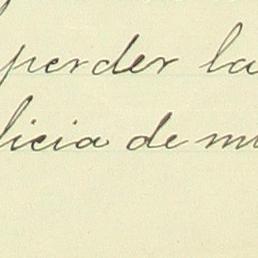 perder la
licia de m